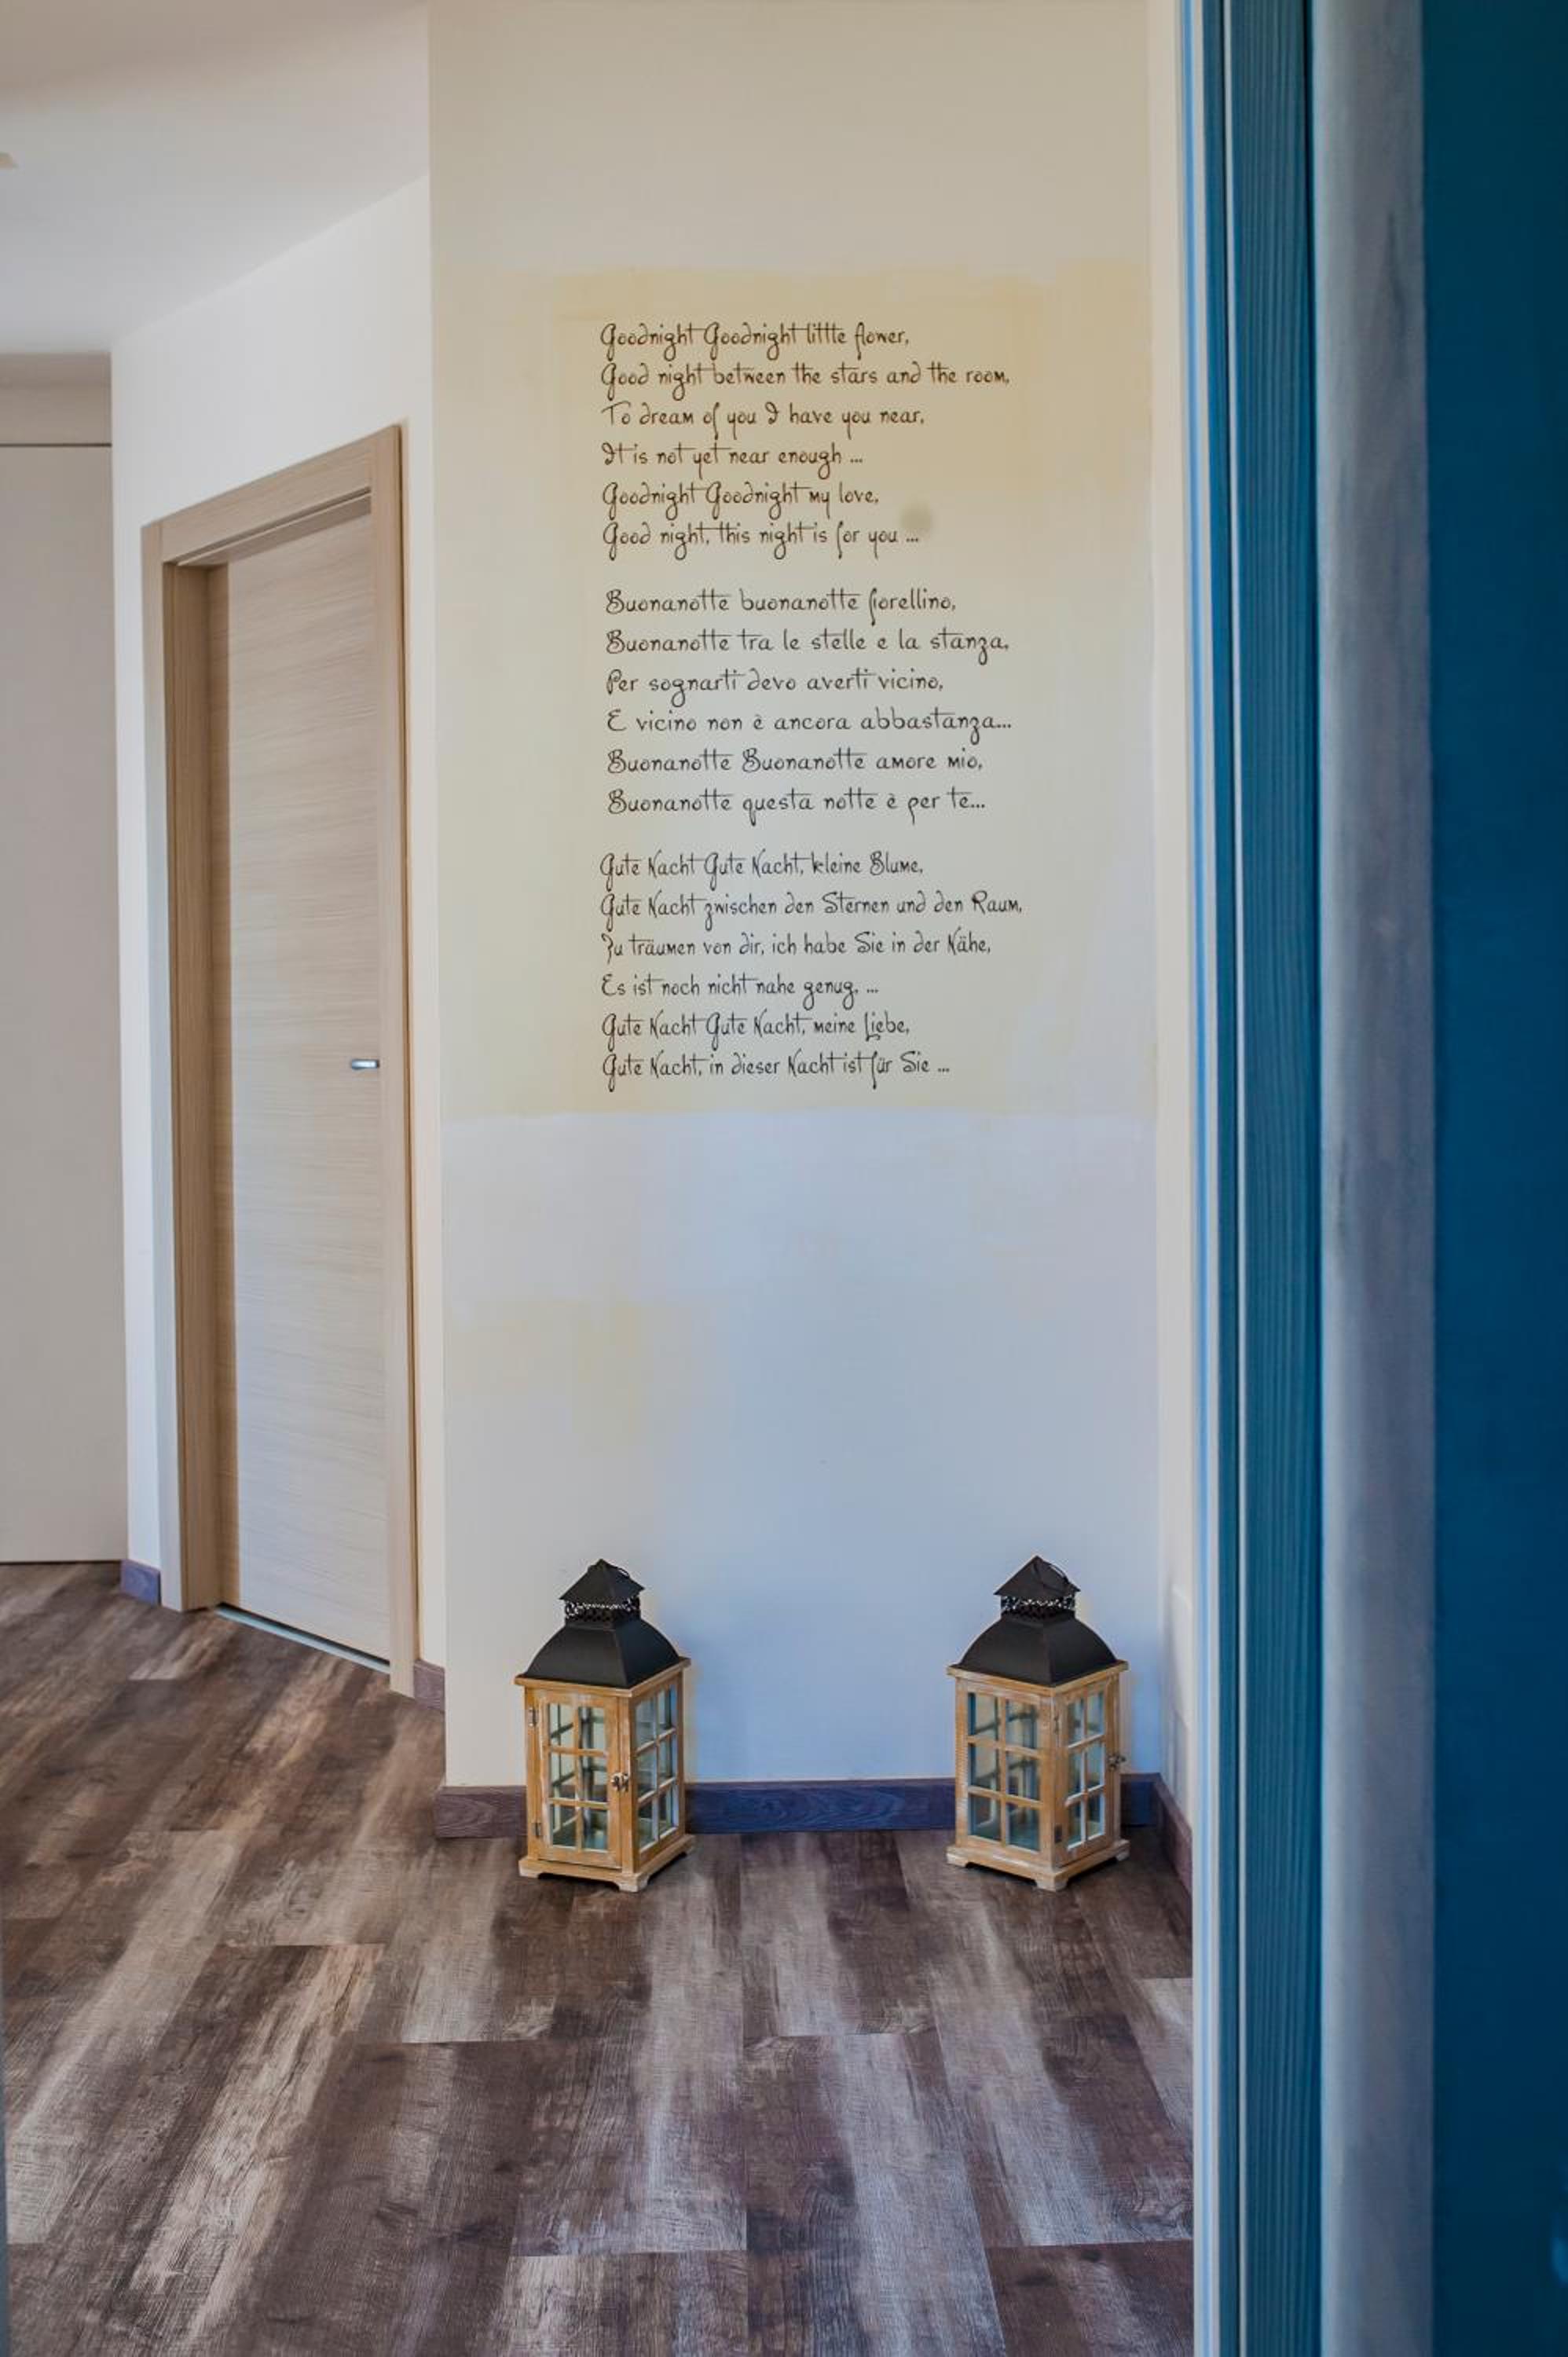 Goodnight Goodnight little flower,
Good night between the stars and the room,
To dream of you I have you near,
It is not yet near enough ...
Goodnight Goodnight my love,
Good night, this night is for you ...
Buonanotte buonanotte fiorellino,
Buonanotte tra le stelle e la stanza,
Per sognarti devo averti vicino,
E vicino non è ancora abbastanza...
Buonanotte Buonanotte amore mio,
Buonanotte questa notte è per te...
Gute Nacht Gute Nacht, kleine Blume,
Gute Nacht zwischen den Sternen und den Raum,
Zu träumen von dir, ich habe Sie in der Nähe,
Es ist noch nicht nahe genug, ...
Gute Nacht Gute Nacht, meine Liebe,
Gute Nacht, in dieser Nacht ist für Sie ...